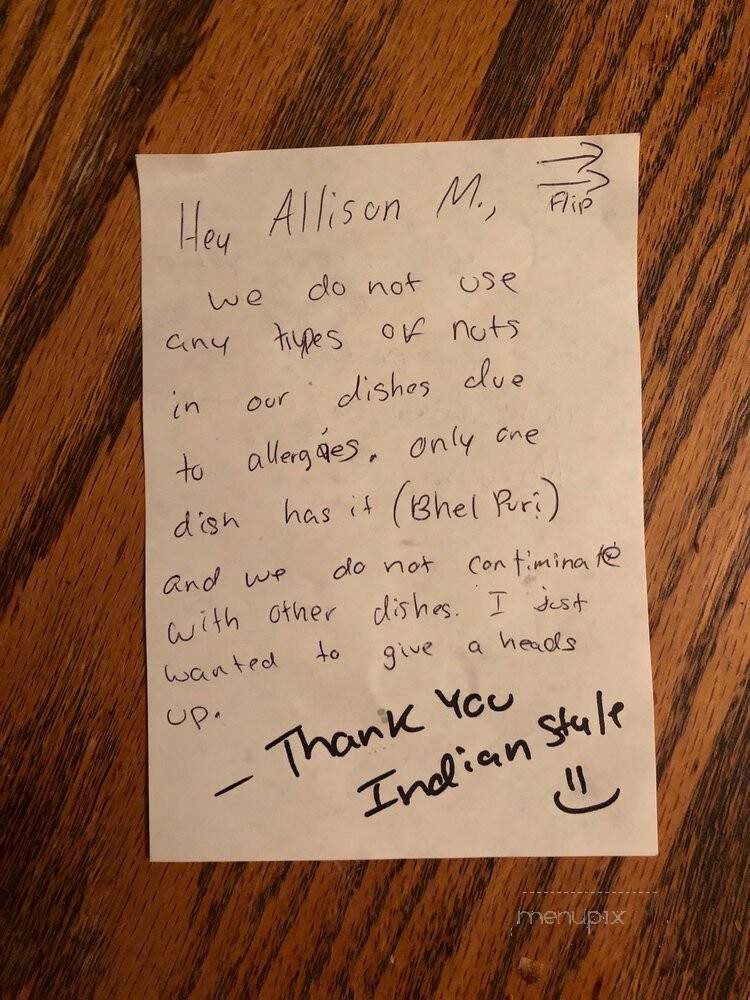 Hey Allison M.,
Flip
we do not use
any types of nuts
in our dishes due
to allergies. only one
dish has it (Bhel Puri)
and we do not contiminate
with other dishes. I just
wanted to give a heads
up.
- Thank You
Indian Style
menupix